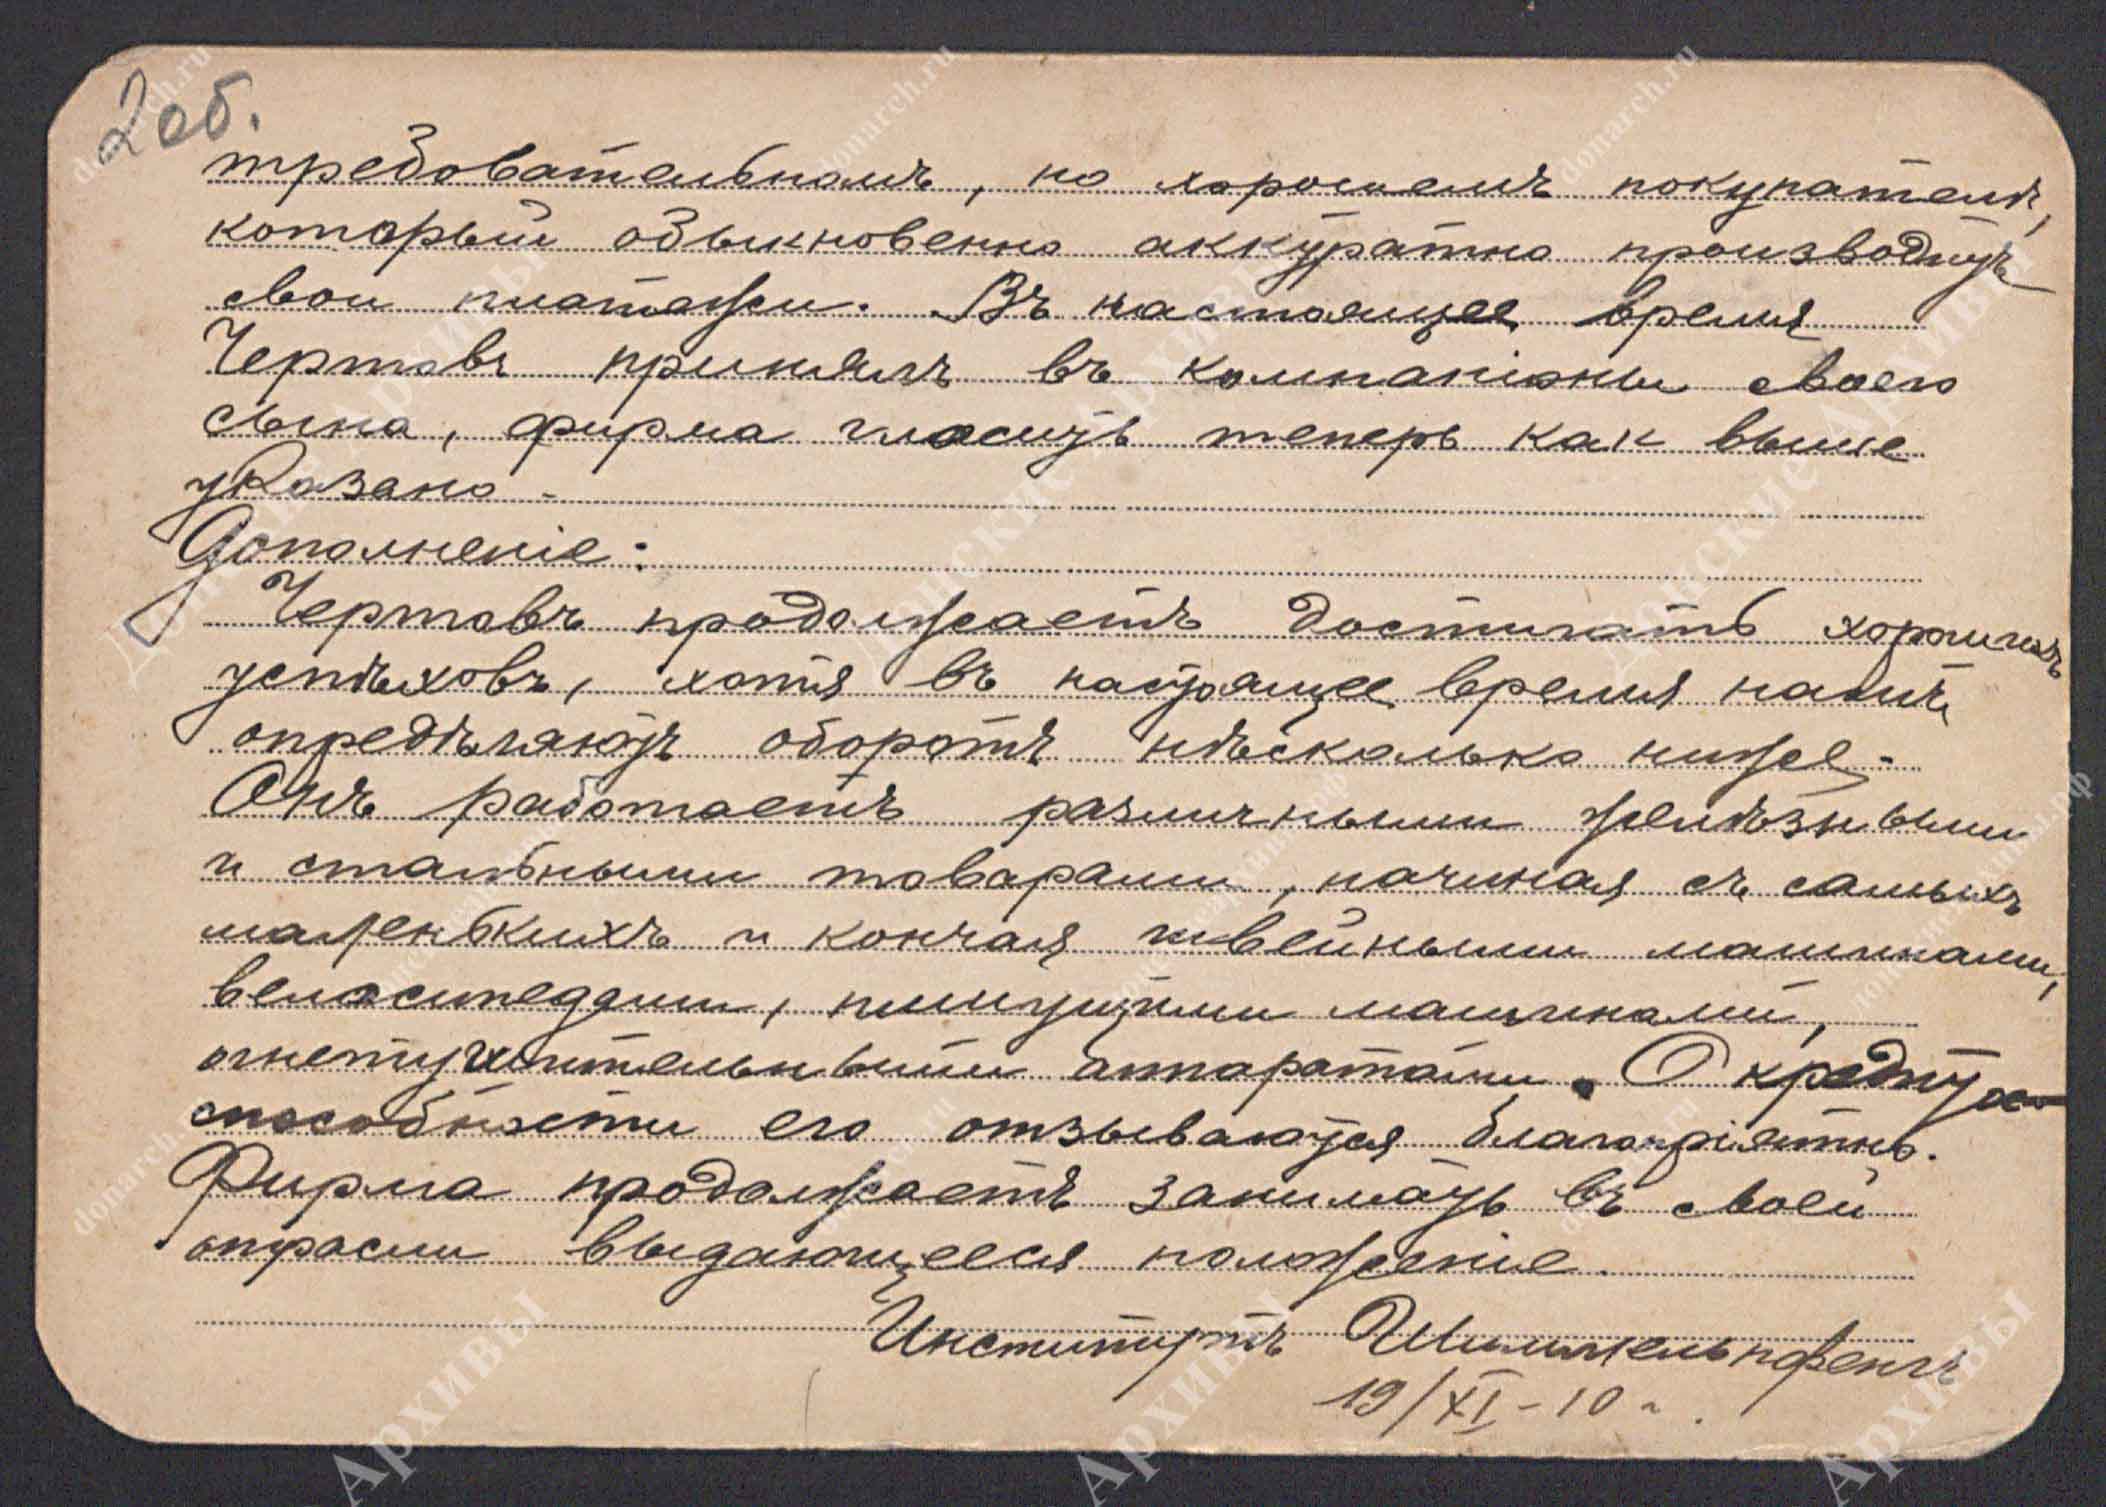 2 об.
требовательномъ, но хорошемъ покупателѣ,
который обыкновенно аккуратно производитъ
свои платежи. Въ настоящее время
Чертовъ принялъ въ компаніоны своего
сына, фирма гласитъ теперь как выше
указано -
Дополненіе:
Чертовъ продолжаетъ достигать хорошихъ
успѣховъ, хотя въ настоящее время намъ
опредѣляютъ оборотъ нѣсколько ниже.
Онъ работаетъ различными желѣзными
и стальными товарами, начиная съ самыхъ
маленькихъ и кончая швейными машинами,
велосипедами, пишущими машинами,
огнетушительными аппаратами. О кредито-
способности его отзываются благопріятно.
Фирма продолжаетъ занимать въ своей
отрасли выдающееся положеніе.
Институтъ Шиммельпфенгъ
19/XI-10 г.
donarch.ru
Донские Архивы